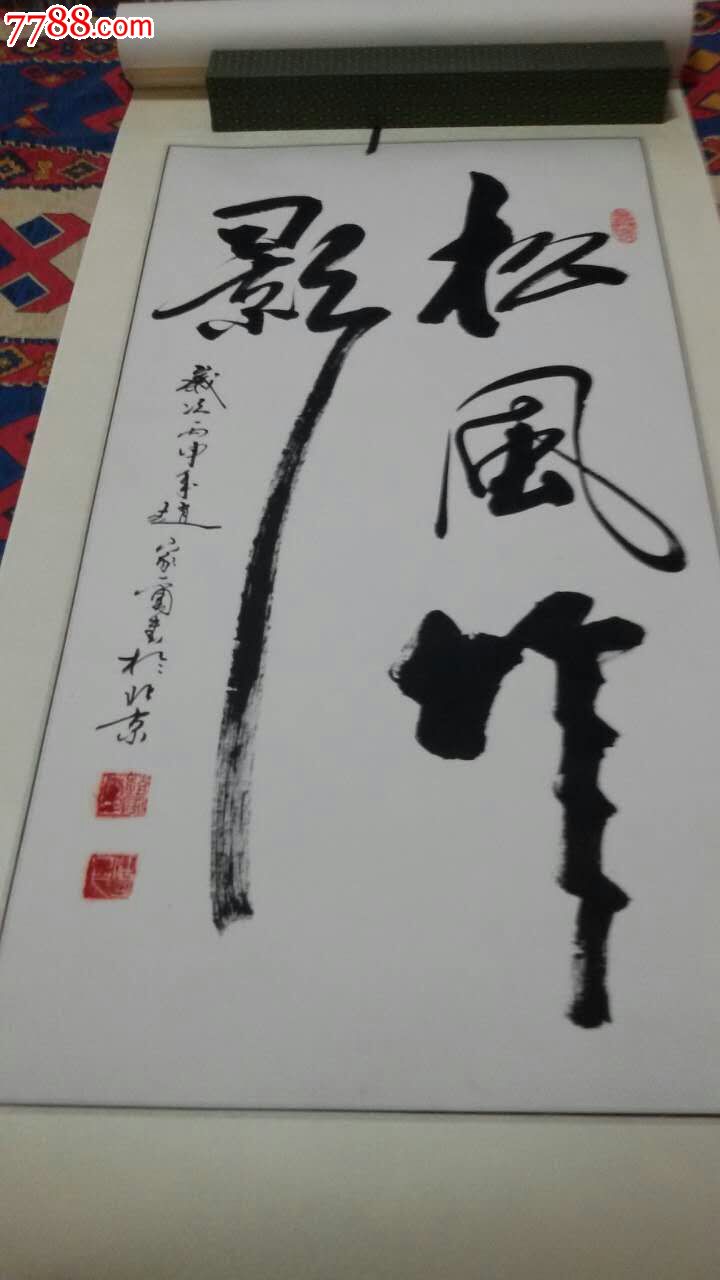 7788.com
松風竹
影
歲次丙申年趙家富書於北京